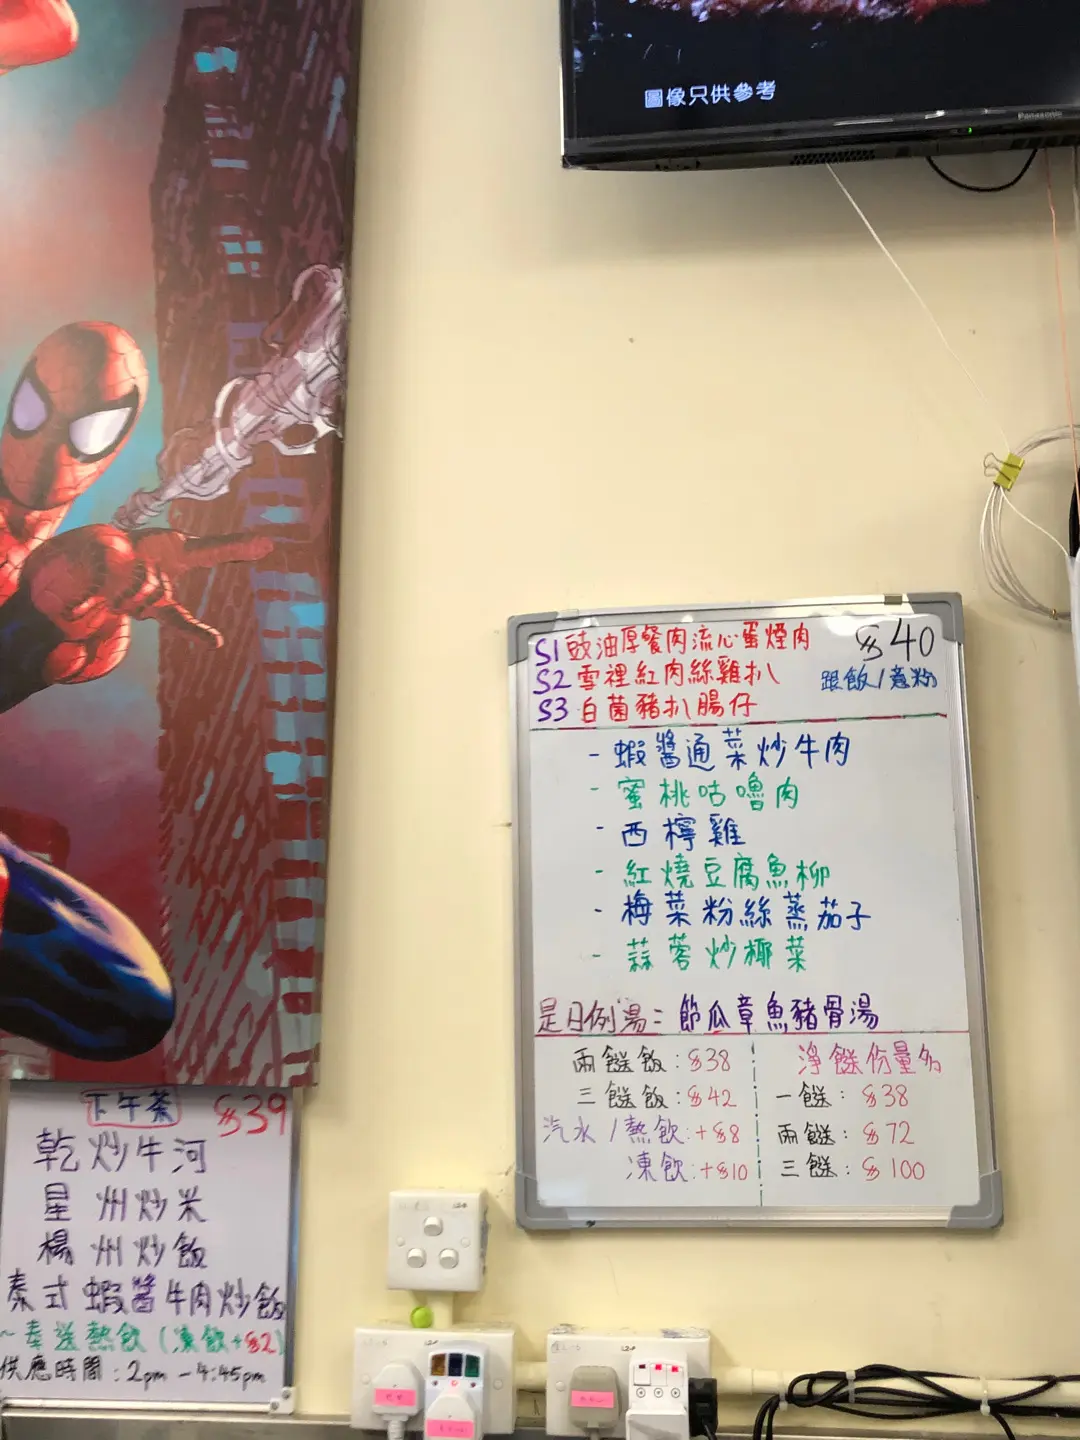 圖像只供參考
Panasonic
S1 豉油厚餐肉流心蛋煙肉 $40
S2 雪裡紅肉絲雞扒 跟飯/意粉
S3 白菌豬扒腸仔
- 蝦醬通菜炒牛肉
- 蜜桃咕嚕肉
- 西檸雞
- 紅燒豆腐魚柳
- 梅菜粉絲蒸茄子
- 蒜蓉炒椰菜
是日例湯: 節瓜章魚豬骨湯
兩餸飯: $38
三餸飯: $42
汽水/熱飲: +$8
凍飲: +$10
淨餸份量多
一餸: $38
兩餸: $72
三餸: $100
下午茶 $39
乾炒牛河
星州炒米
楊州炒飯
泰式蝦醬牛肉炒飯
~奉送熱飲(凍飲+$2)
供應時間:2pm-4:45pm